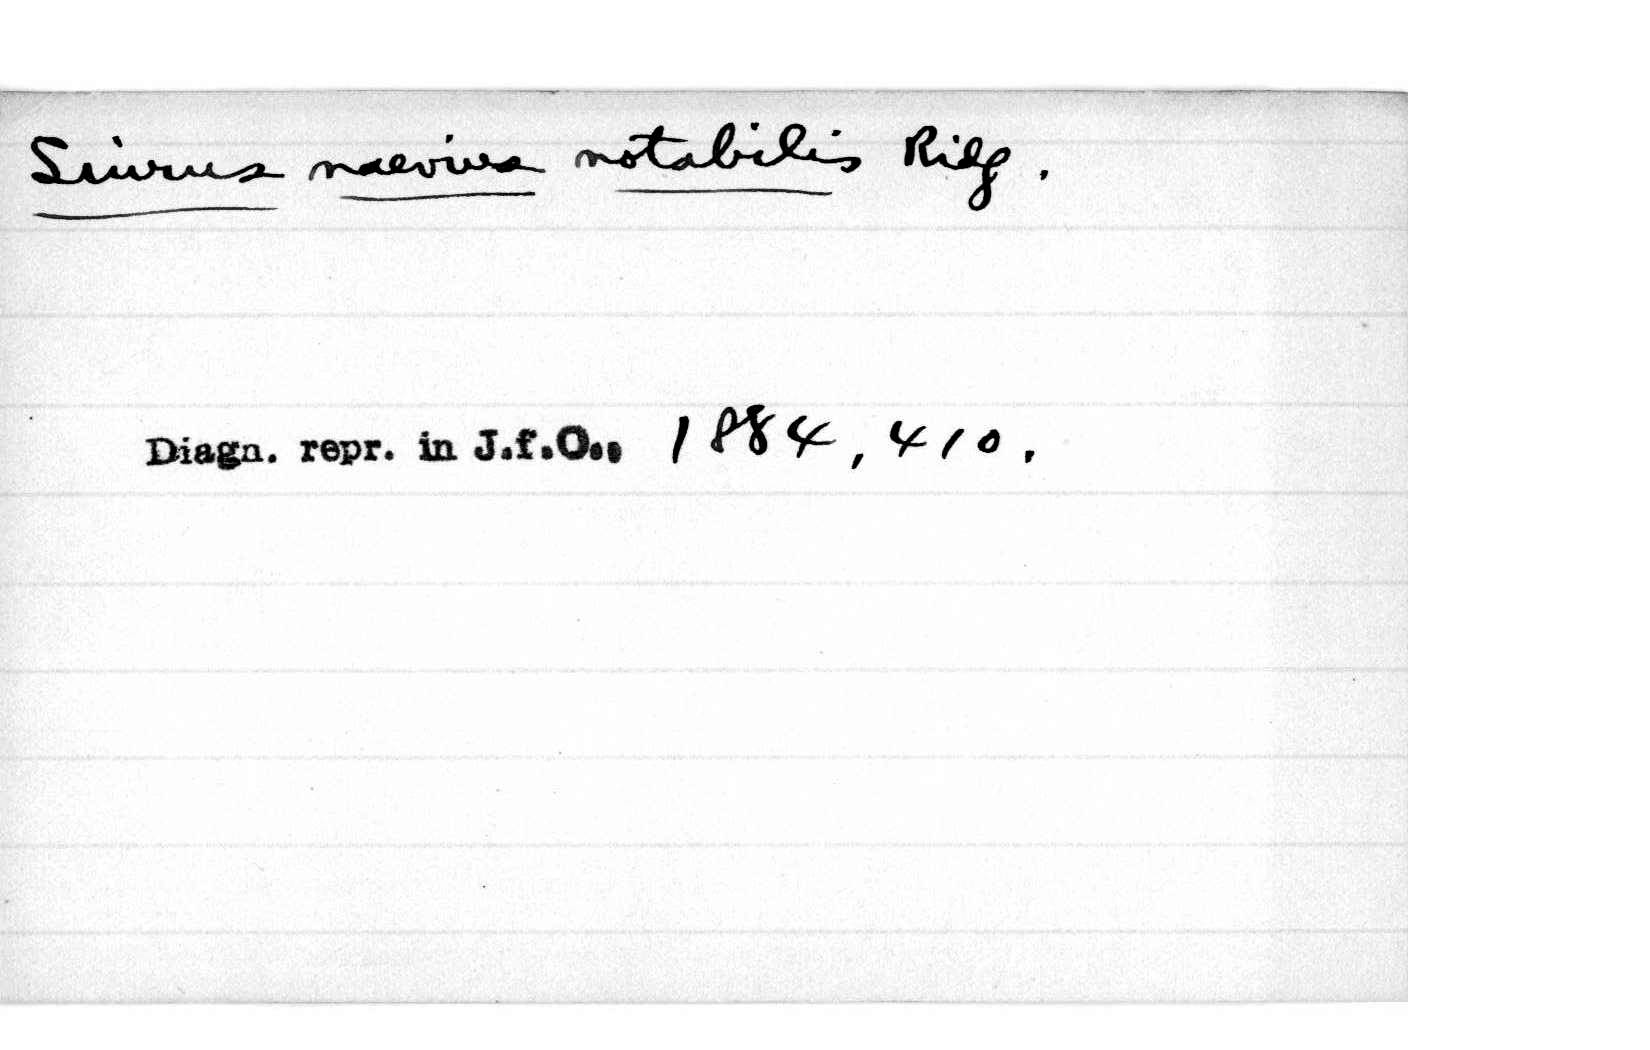 Siurus naevius notabilis Ridg.
Diagn. repr. in J.f.O., 1884, 410.